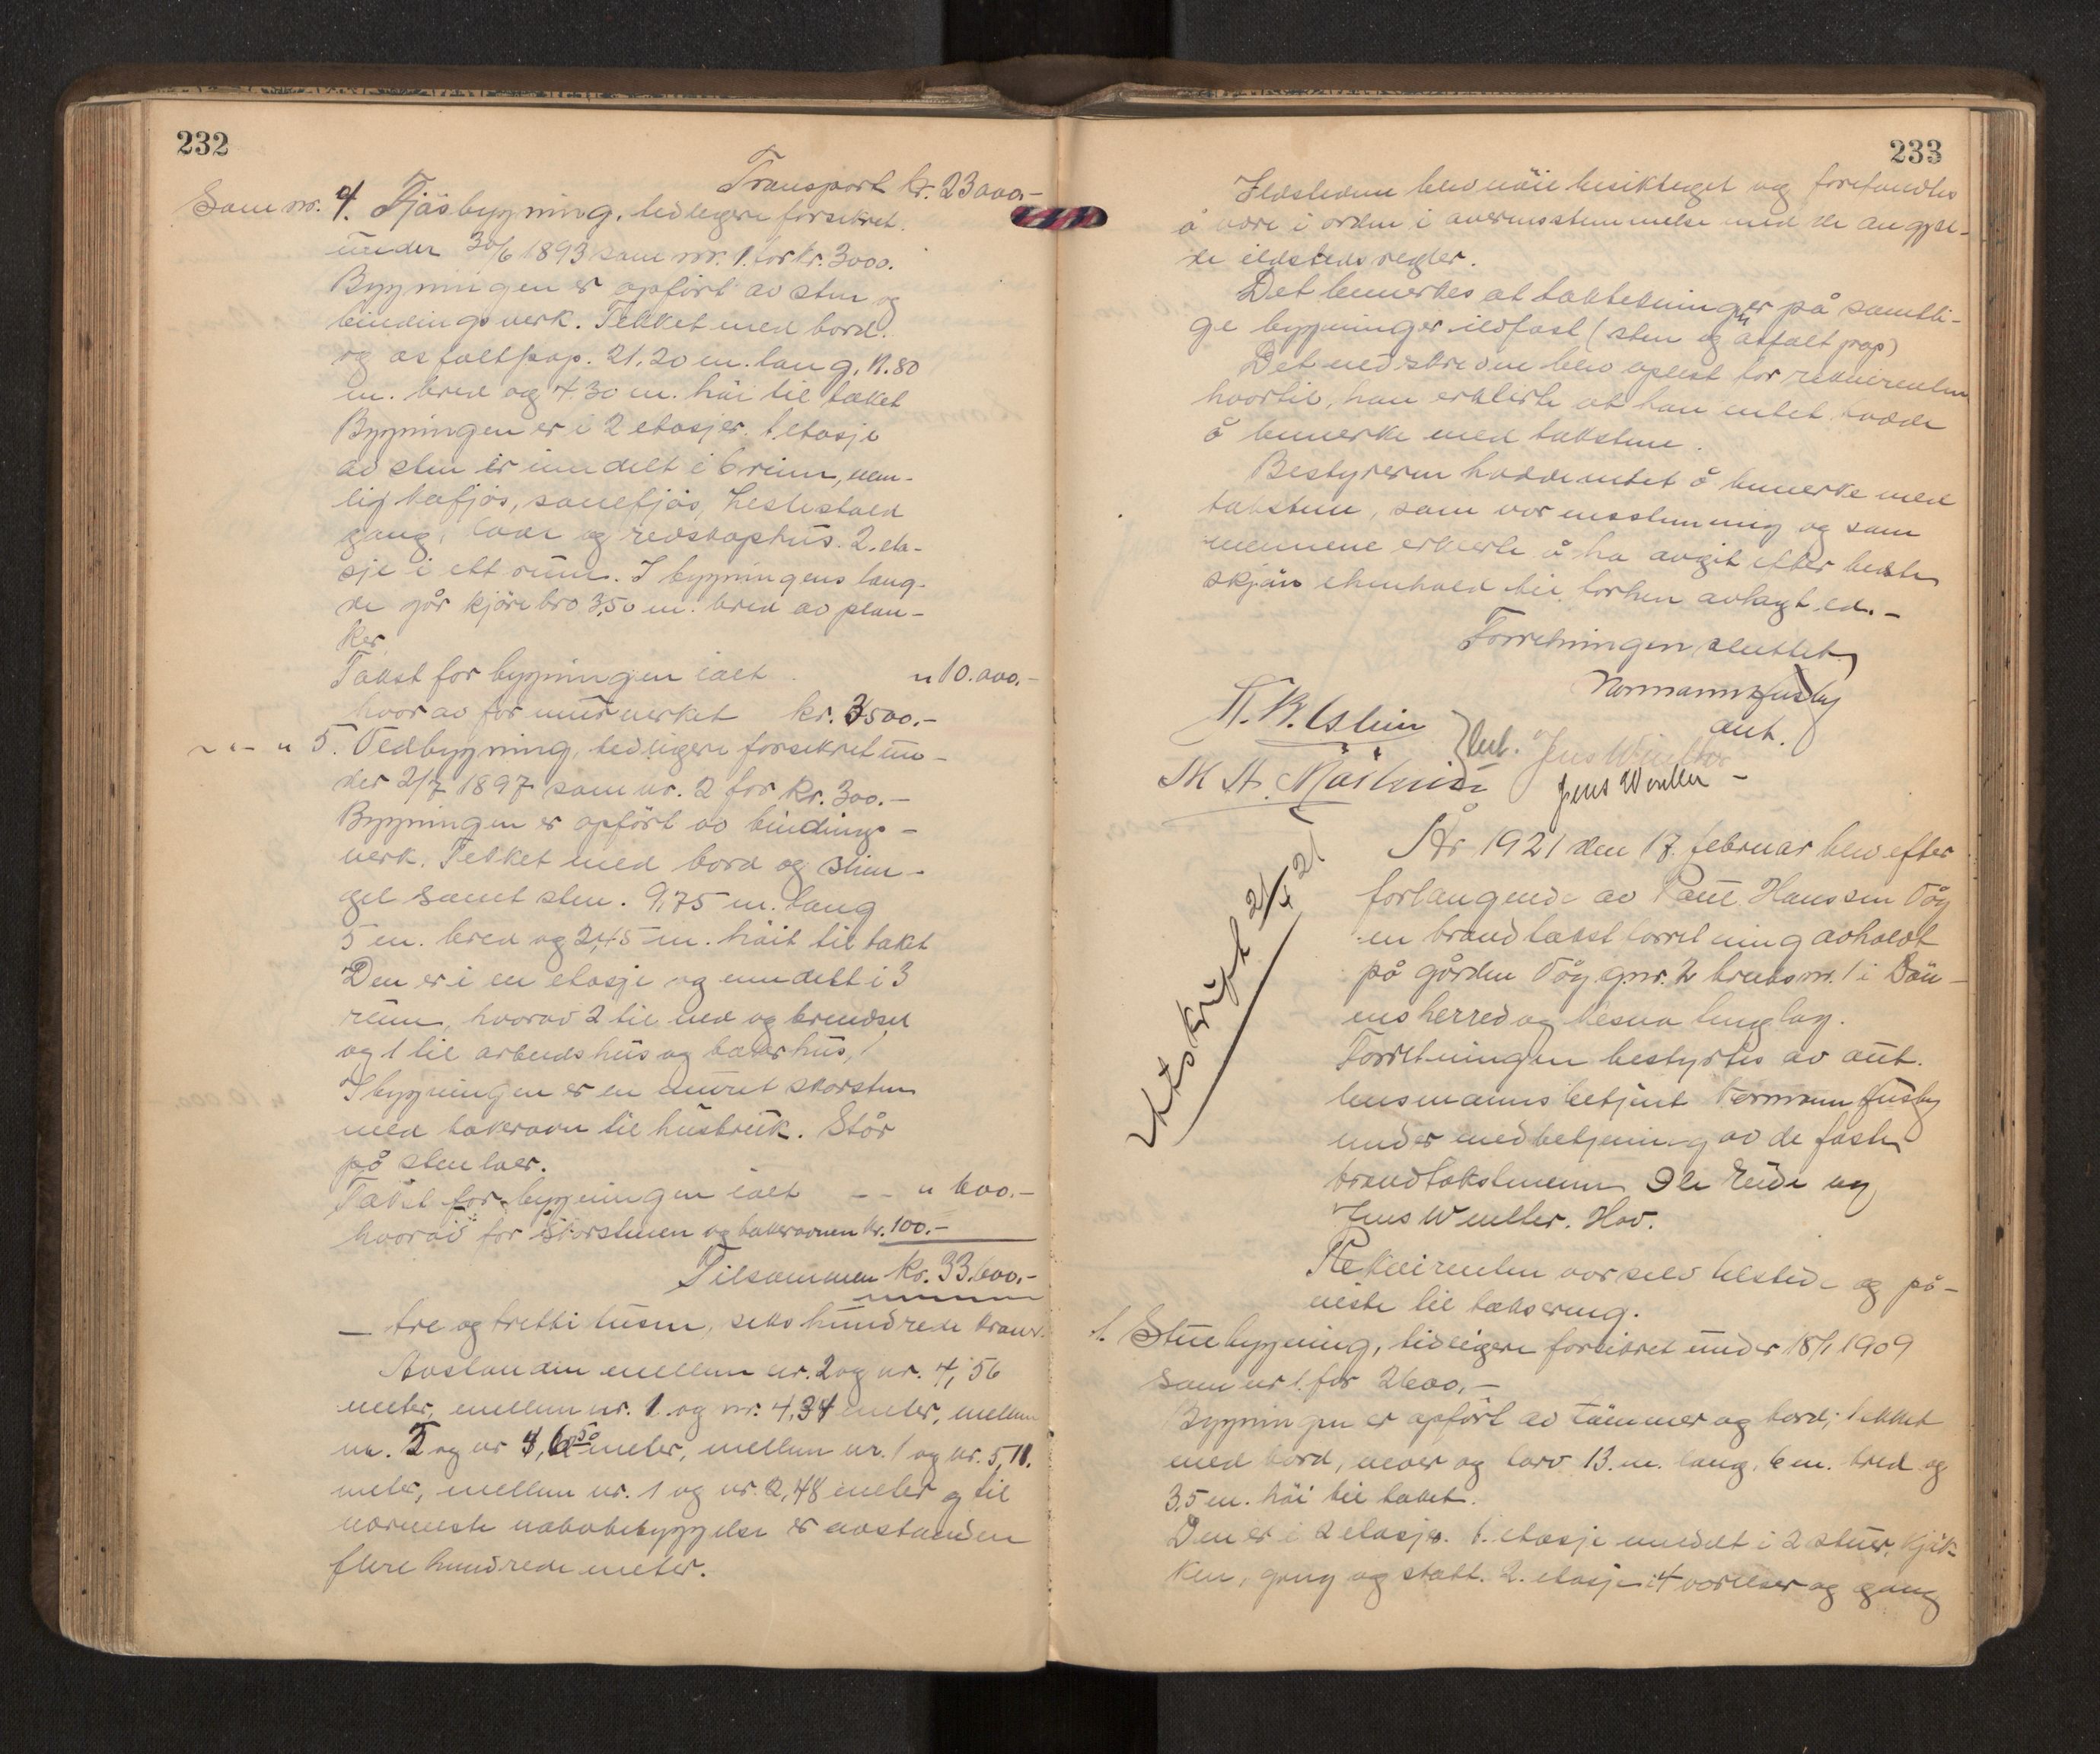 232
Transport kr. 23000.-
Som nr. 4. Fjøsbygning, tidligere forsikret
under 30/6 1893 som nr. 1. for kr. 3000.
Bygningen er opført av sten og
bindingsverk. Tekket med bord
og asfaltpap. 21,20 m. lang, 11.80
m. bred og 4.30 m. høi til taket
Bygningen er i 2 etasjer. 1 etasje
av sten er inndelt i 6 rum, nem-
lig kufjøs, sauefjøs, hestestald
gang, lade og redskaphus. 2. eta-
sje i ett rum. I bygningens leng-
de går kjørebro 3,50 m. bred av plan-
ker.
Takst for bygningen ialt " 10.000.-
hvorav for murverket kr. 3500.-
" 5. Vedbygning, tidligere forsikret un-
der 2/7 1897 som nr. 2 for kr. 300.-
Bygningen er opført av bindings-
verk. Tekket med bord og
samt sten. 9,75 m. lang
5 m. bred og 2,45 m. høit til taket
Den er i en etasje og inndelt i 3
rum, hvorav 2 til ved og brendsel
og 1 til arbeidshus og bakerhus,
I bygningen er en muret skorsten
med bakerovn til husbruk. Står
på sten
Takst for bygningen ialt - - " 600.-
hvorav for skorstenen og bakerovnen kr. 100.-
Tilsammen kr. 33.600.-
- tre og tretti tusen, seks hundrede kroner.
Avstanden mellem nr. 2 og nr. 4, 56
meter, mellem nr. 1 og nr. 4, 34 meter, mellem
nr. og nr meter, mellem nr. 1 og nr. 5, 11.
meter, mellem nr. 1 og nr. 2, 48 meter og til
nærmeste nabobebyggelse er avstanden
flere hundrede meter.
233
Ildstedene blev nøie besiktiget og forefandtes
å være i orden i overensstemmelse med de angjel-
de ildstedsregler.
Det bemerkes at taktekninger på samtli-
ge bygninger ildfast (sten og asfalt pap)
Det nedskrevne blev oplest for rekvirenten
hvortil, han erklærte at han intet hadde
å bemerke med taksten.
Bestyreren hadde intet å bemerke med
taksten, som var enstemmig og som
mennene erklerte å ha avgit efter beste
skjøn i henhold til forhen avlagt ed.-
Forretningen sluttet
Normann Husby
aut.
Jens Winther
Jens Winther -
Utskrift 21/4 21
År 1921 den 17. februar blev efter
forlangende av Paul Hanssen Våg
en brandtakstforretning avholdt
på gården Våg gnr. 2 bruksnr. 1 i Døn-
nes herred og Nesna tinglag.
Forretningen bestyrtes av aut.
lensmannsbetjent Normann Husby
under medbetjening av de faste
brandtakstmenn Ole Eide og
Jens Winther. Hov.
Rekvirenten var selv tilstede og på-
viste til taksering.
1. Stuebygning, tidligere forsikret under 18/1 1909
som nr 1. for 2600.-
Bygningen er opført av tømmer og bord; tekket
med bord, never og torv 13. m. lang, 6 m. bred og
3,5 m. høi til taket.
Den er i 2 etasjer. 1. etasje inndelt i 2 stuer, kjøk-
ken, gang og 2. etasje i 4 værelser og gang